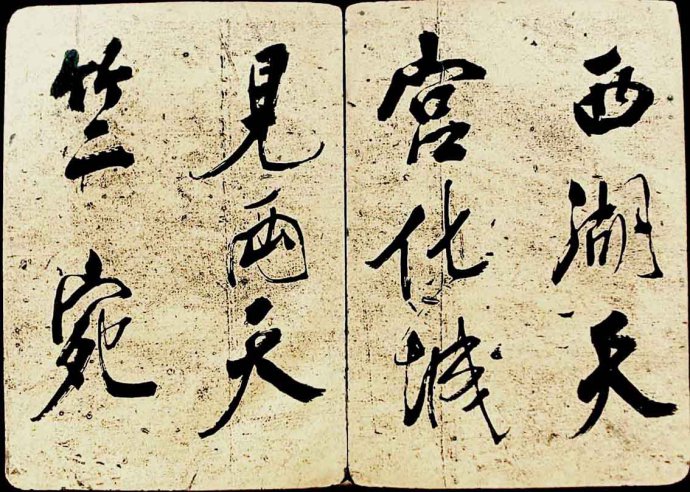 西湖天
宮化城
見兩天
竺宛